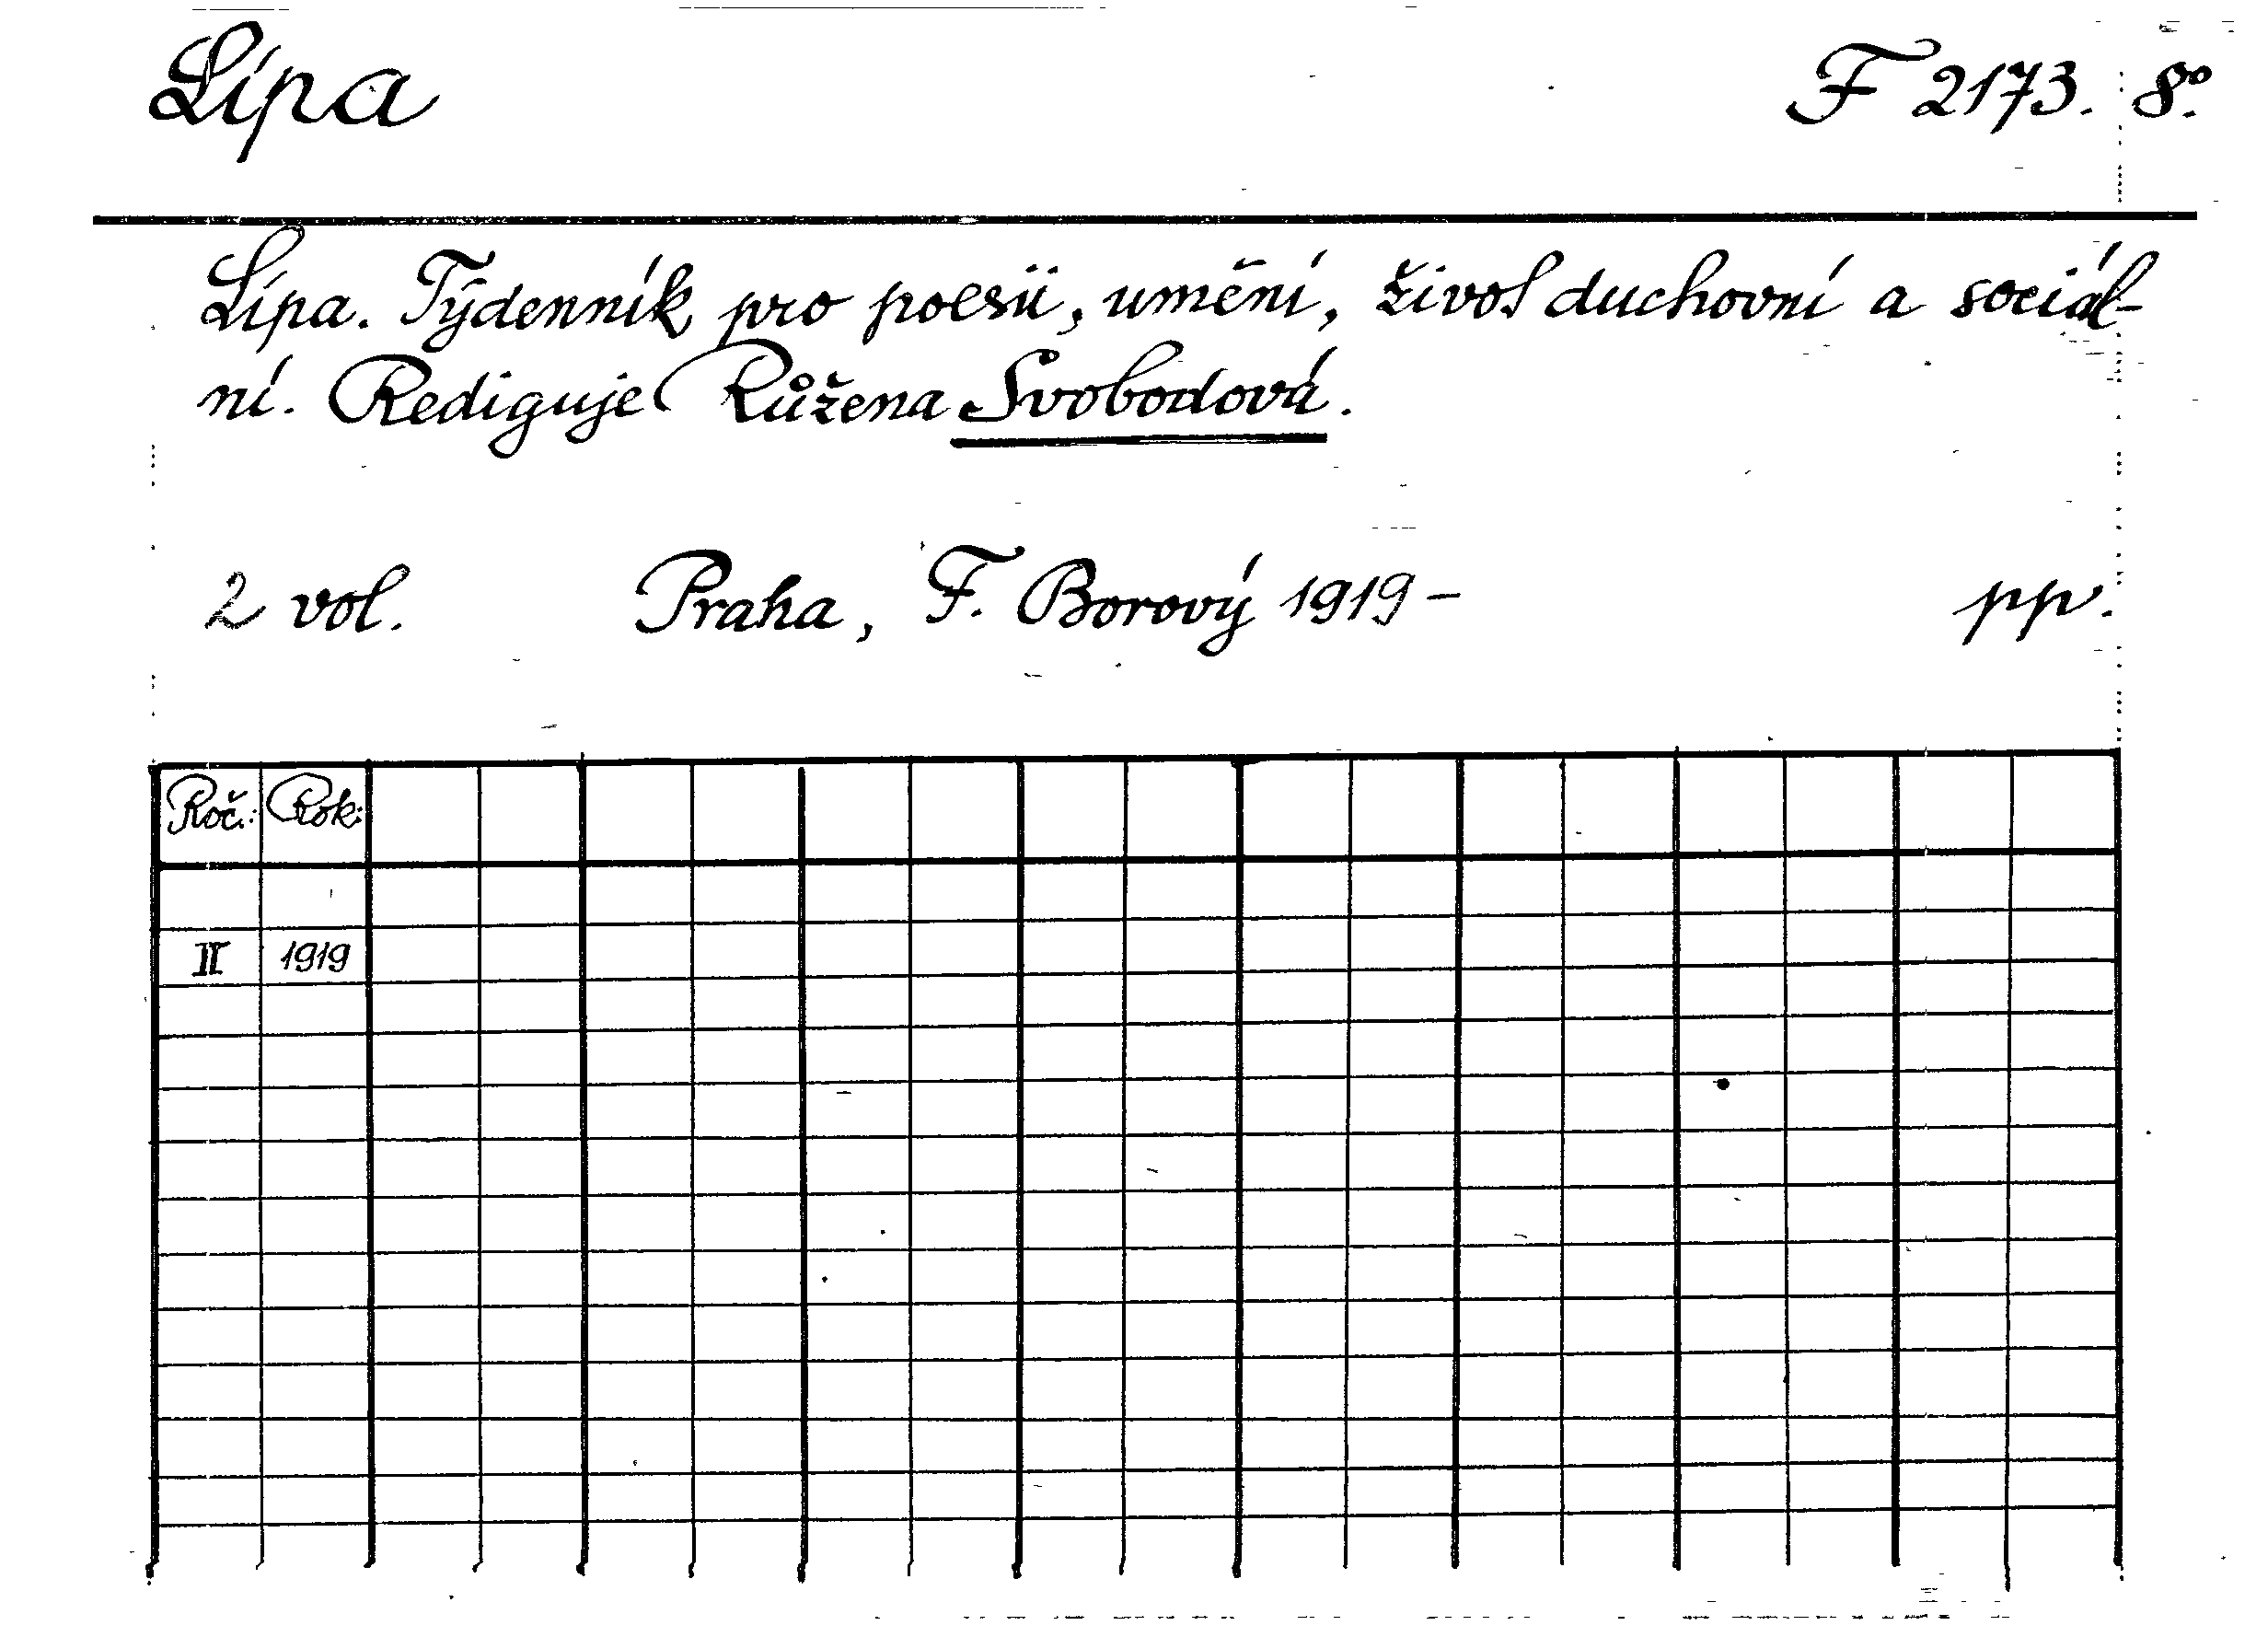 Lípa F 2173. 8°.
Lípa. Týdenník pro poesii, umění, život duchovní a sociál-
ní. Rediguje Růžena Svobodová.
2 vol. Praha, F. Borový 1919- pp.
Roč.: Rok:
II 1919